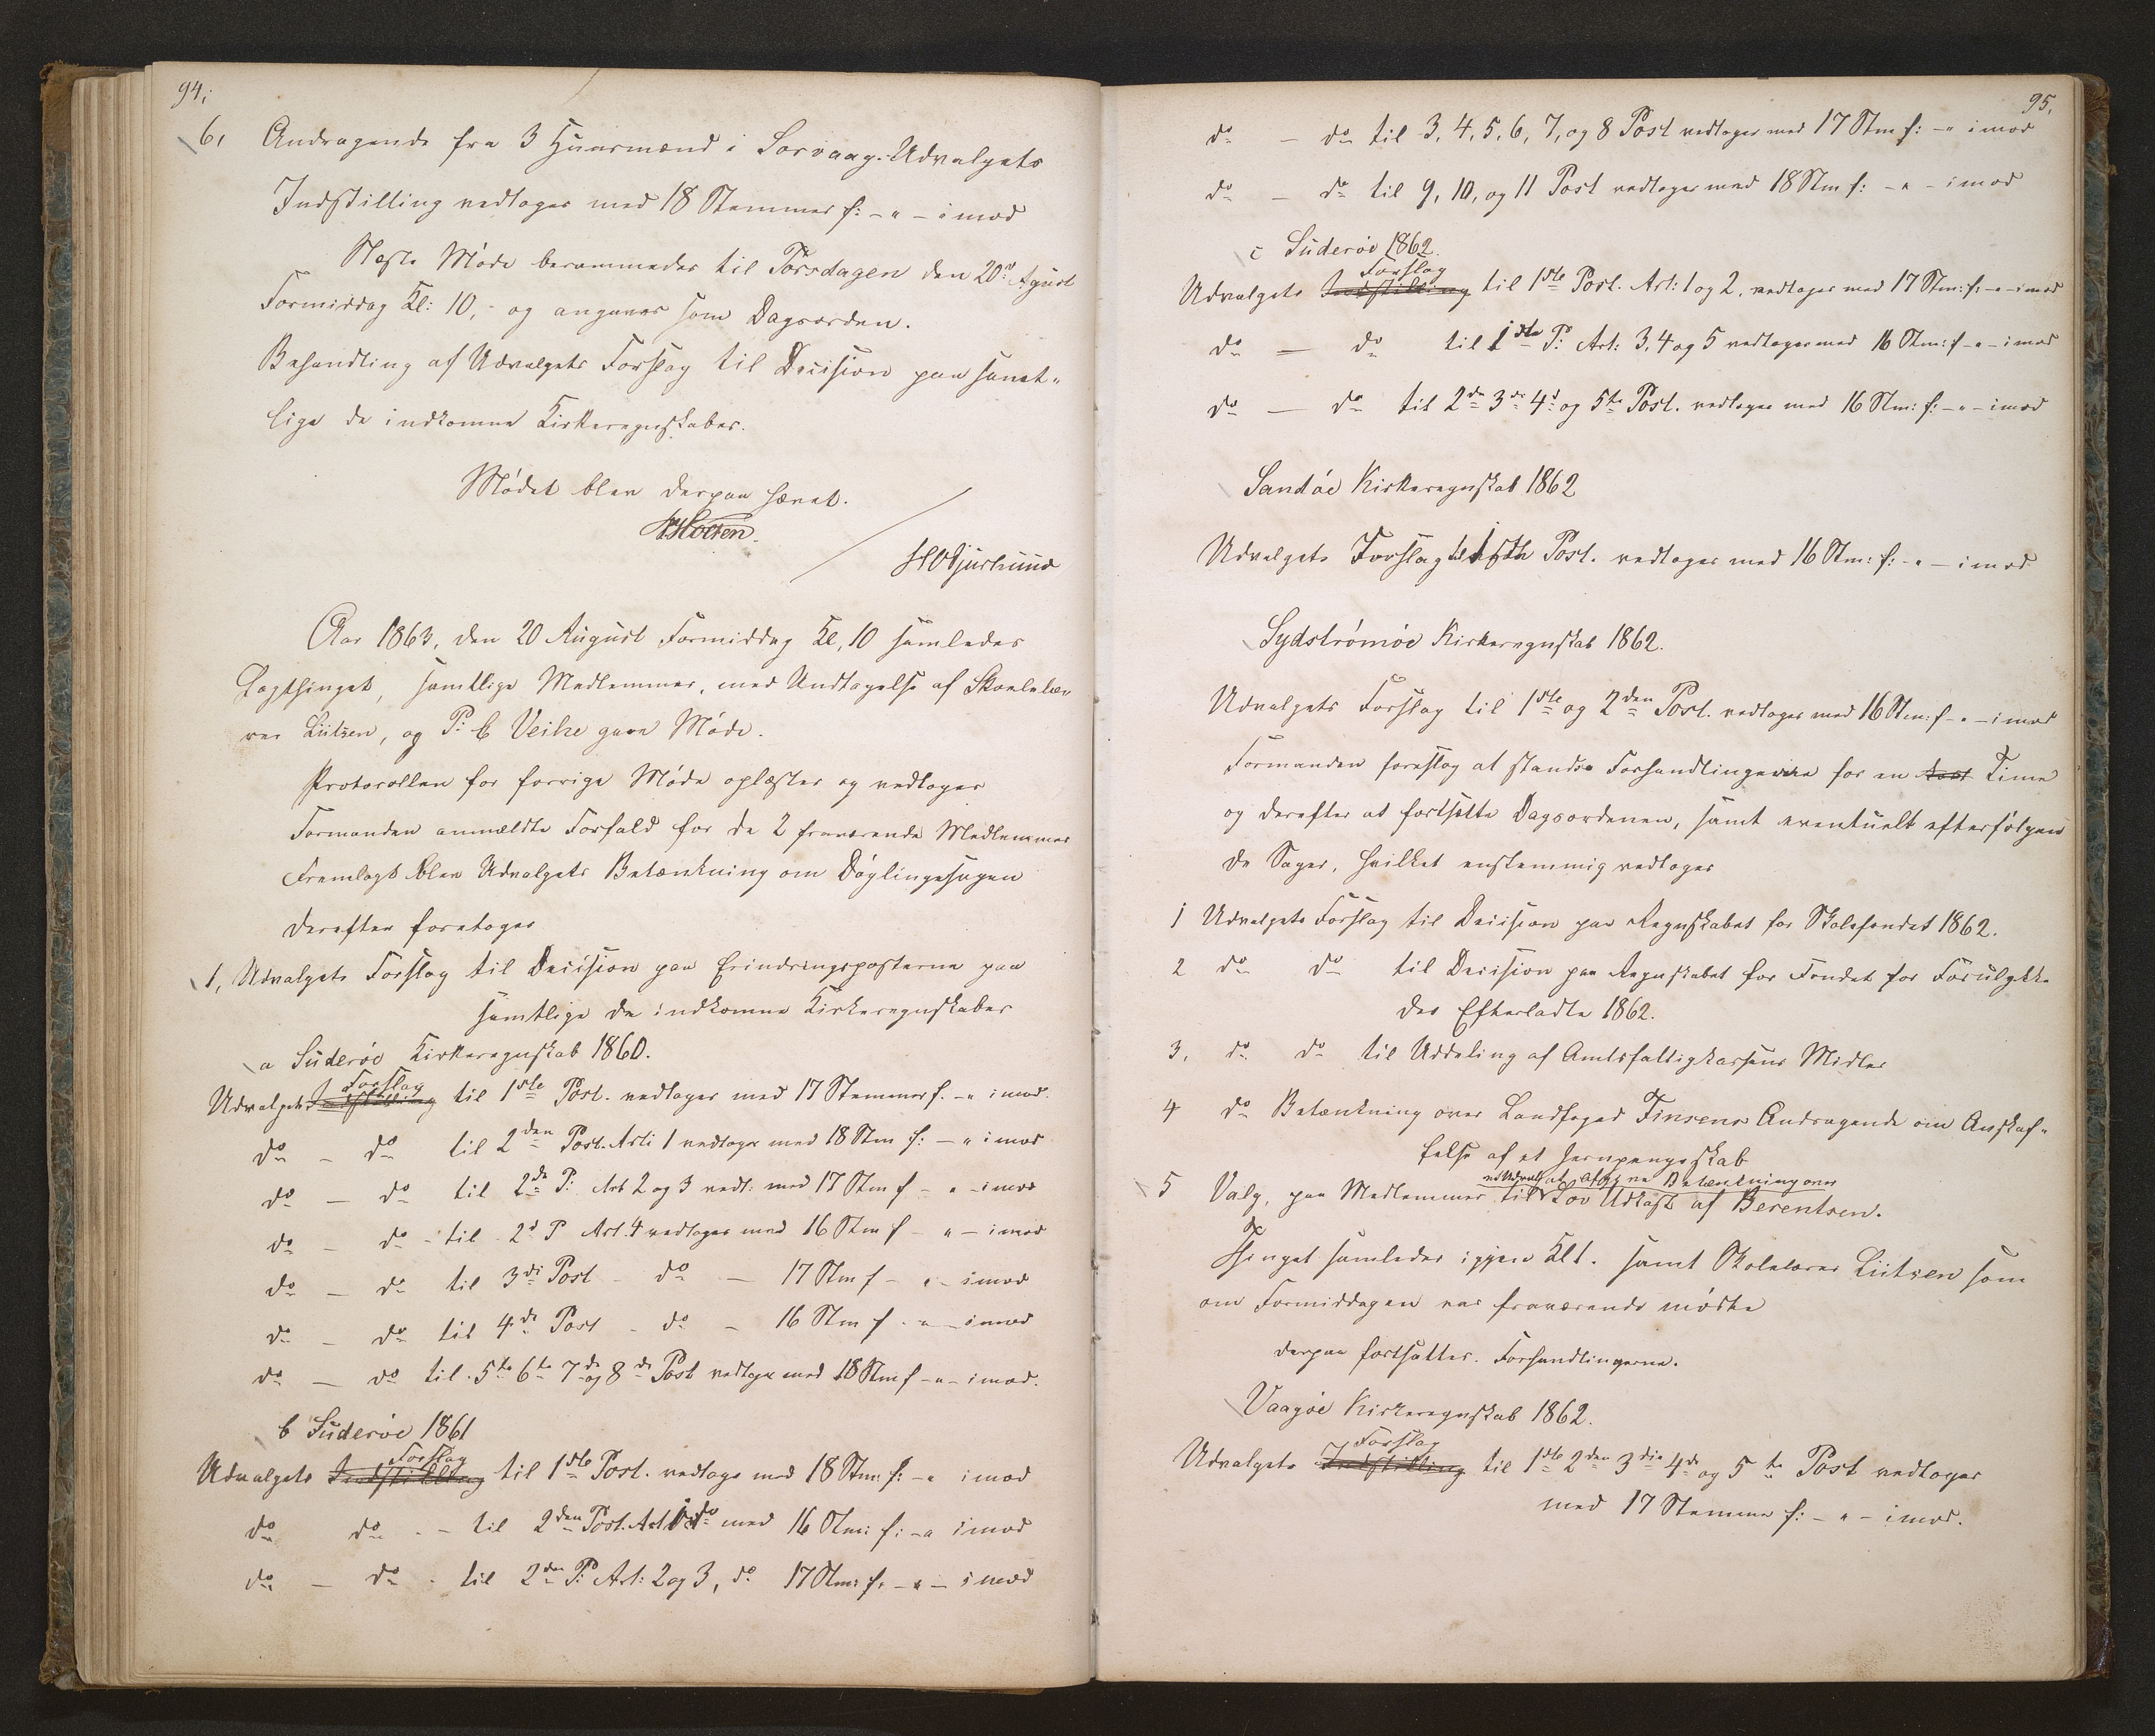 94,
6, Andragende fra 3 Huusmænd i Sorvaag. Udvalgets
Indstilling vedtoges med 18 Stemmer f: - " - imod
Næste Møde berammedes til Torsdagen den 20de Agust
Formiddag Kl: 10, - og angaves som Dagsorden.
Behandling af Udvalgets Forslag til Decision paa samt-
lige de indkomne Kirkeregnskaber.
Mødet blev derpaa hævet.
HODjurhuus
Aar 1863, den 20 August Formiddag Kl, 10 samledes
Lagthinget, samtlige Medlemmer, med Undtagelse af Skolelæ-
rer Lützen, og P: C Veihe gave Møde.
Protocollen for forrige Møde oplæstes og vedtoges
Formanden anmeldte Forfald for de 2 fraværende Medlemmer
Fremlagt blev Udvalgets Betænkning om Døglingesagen
derefter foretoges
1, Udvalgets Forslag til Decision paa Erindringsposterne paa
samtlige de indkomne Kirkeregnskaber
a Suderøe Kirkeregnskab 1860.
Forslag
Udvalgets Indstilling til 1ste Post. vedtoges med 17 Stemmer f. - " imod.
do - do til 2den Post. Arti 1 vedtoges med 18 Stm f: - " imod
do - do til 2de P: Art 2 og 3 vedt: med 17 Stm f - " - imod
do - do - til 2d P Art. 4 vedtoges med 16 Stm f - " - imod
do - do til 3di Post - do - 17 Stm f - " - imod
do - do til 4de Post - do - 16 Stm f - " - imod
do - do til 5te 6te 7de og 8de Post vedtoges med 18 Stm f - " - imod.
b Suderøe 1861
Forslag
Udvalgets Indstilling til 1ste Post. vedtoges med 18 Stm: f: - " imod
do do - - til 2den Post. Art 1 do med 16 Stm: f: - " imod
do - do - til 2den P: Art: 2 og 3, do 17 Stm: f. - " - imod
95,
do - do til 3, 4, 5, 6, 7, og 8 Post vedtoges med 17 Stm f: - " imod
do - do til 9, 10, og 11 Post vedtoges med 18 Stm f: - " - imod
c Suderøe 1862.
Forslag
Udvalgets Indstilling til 1ste Post. Art: 1 og 2, vedtoges med 17 Stm: f: - " - imod
do - do til 1ste P: Art: 3, 4 og 5 vedtoges med 16 Stm: f - " - imod
do - do til 2de 3die 4d og 5te Post. vedtoges med 16 Stm: f: - " - imod
Sandøe Kirkeregnskab 1862
Udvalgets Forslag til 1ste Post. vedtoges med 16 Stm: f: - " - imod
Sydstrømøe Kirkeregnskab 1862.
Udvalgets Forslag til 1ste og 2den Post. vedtoges med 16 Stm: f - " - imod
Formanden foreslog at standse Forhandlingerne for en Time
og derefter at fortsætte Dagsordenen, samt eventuelt efterfølgen
de Sager, hvilket enstemmig vedtoges
1 Udvalgets Forslag til Decision paa Regnskabet for Skolefondet 1862.
2 do do til Decision paa Regnskabet for Fondet for Forulykke-
des Efterladte 1862.
3, do do til Uddeling af Amtsfattigkassens Midler
4 do Betænkning over Landfoged Finsens Andragende om Anskaf-
felse af et Jernpengeskab
et Udvalg at afgive Betænkning over
5 Valg, paa Medlemmer til Lov Udkast af Berentsen.
Thinget samledes igjen Kl 1. samt Skolelærer Lützen som
om Formiddagen var fraværende mødte
derpaa fortsattes Forhandlingerne.
Vaagøe Kirkeregnskab 1862.
Forslag
Udvalgets Indstilling til 1ste 2den 3die 4de og 5te Post vedtoges
med 17 Stemmer f: - " - imod.